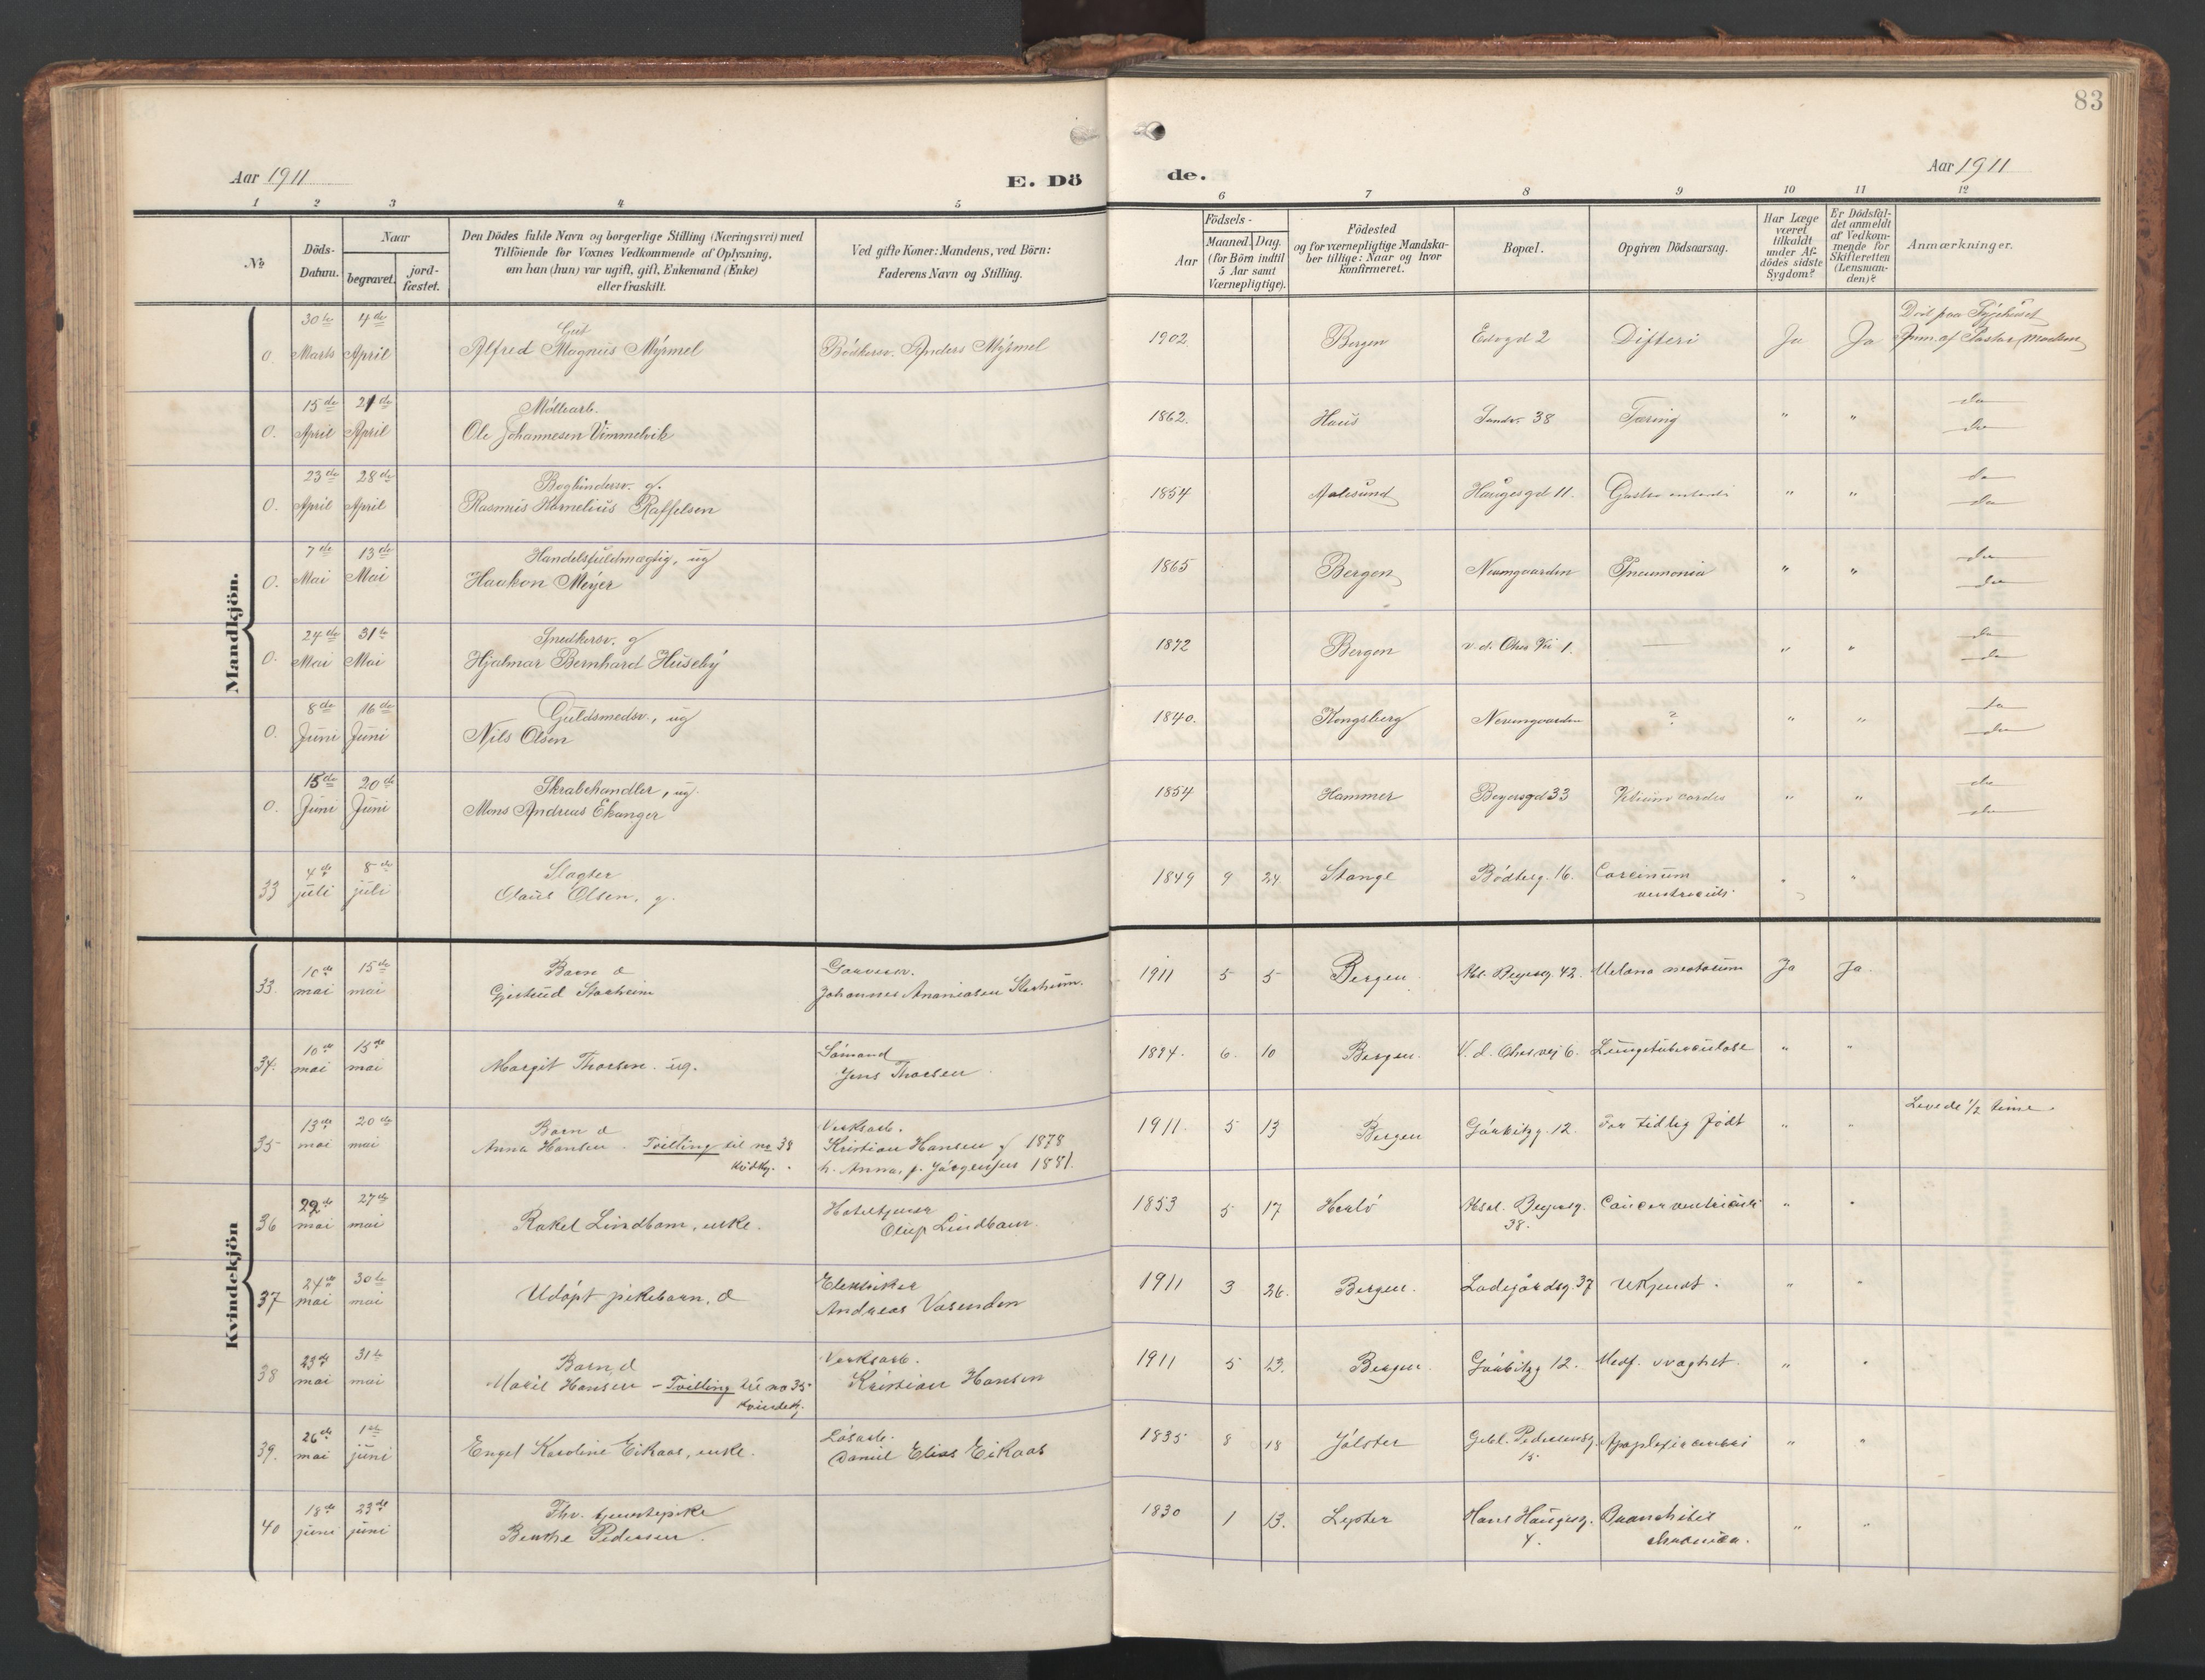 83
Aar 1911
E. Dö
de.
Aar 1911
1 2 3 4 5 6 7 8 9 10 11 12
No
Döds-Datum.
Naar
begravet.
jord-fæstet.
Den Dödes fulde Navn og borgerlige Stilling (Næringsvei) med
Tilföiende for Voxnes Vedkommende af Oplysning,
om han (hun) var ugift, gift, Enkemand (Enke)
eller fraskilt.
Ved gifte Koner: Mandens, ved Börn:
Faderens Navn og Stilling.
Födsels-
Aar
Maaned. Dag.
(for Börn indtil
5 Aar samt
Værnepligtige).
Födested
og for værnepligtige Mandska-
ber tillige: Naar og hvor
konfirmeret.
Bopæl.
Opgiven Dödsaarsag.
Har Læge
været
tilkaldt
under Af-
dödes sidste
Sygdom?
Er Dödsfal-
det anmeldt
af Vedkom-
mende for
Skifteretten
(Lensman-
den)?
Anmærkninger.
Mandkjön.
0. 30te Marts 4de April Gut
Alfred Magnus Myrmel Bödkersv. Anders Myrmel 1902 Bergen 2 Difteri Ja Ja Död paa Sygehuset
Anm. af Pastor
0. 15de April 21de April Möllearb.
Ole Johannesen Vimmelvik 1862. Haus Sandv. 38 Tæring " " do
do
0. 23de April 28de April Bogbindersv. g.
Rasmus Kornelius Raffelsen 1854 Aalesund Haugesgd 11. Gastro " " do
do
0. 7de Mai 13de Mai Handelsfuldmægtig, ug
Haakon Meyer 1865 Bergen Neumgaarden Pneumonia " " do
do
0. 24de Mai 31te Mai Snedkersv. g
Hjalmar Bernhard Huseby 1872 Bergen — " " do
do
0. 8de Juni 16de Juni Guldsmedsv., ug
Nils Olsen 1840. Kongsberg Neumgaarden ? " " do
do
0. 15de Juni 20de Juni Skrabehandler, ug.
Mons Andreas Ekanger 1854 Hammer Beyersgd 33 Vitium cordis " " do
do
33 4de juli 8de juli Slagter
Olaus Olsen, g. 1849 9 24 Stange Bödkerg. 16. Carcinum
ventriculi " "
Kvindekjön
33. 10de mai 15de mai Barn d
Gjertrud Storheim Garversv.
Johannes Ananiasen Storheim. 1911 5 5 Bergen. Abs. Beyersg. 42. Melæna neotorum Ja Ja.
34. 10de mai 15de mai Margit Thorsen. ug. Sömand
Jens Thorsen 1894. 6. 10 Bergen. V. d. Ohes vej 6. Lungetuberculose " "
35 13de mai 20de mai Barn d
Anna Hansen. Tvilling til no 38
Kvdkj. Verksarb.
Kristian Hansen f 1878
h. Anna, f. Jörgensen 1881. 1911. 5 13 Bergen Görbitzg. 12. For tidlig födt " " Levede 1/2 time.
36 22de mai 27de mai Rakel Lindbom, enke. Hoteltjener
Oluf Lindbom. 1853 5 17 Herlö Absal. Beyersg.
38. Cancer ventriculi " "
37 24de mai 30te mai Udöpt pikebarn, d Elektriker
Andreas Vasenden 1911 3 26. Bergen. Ladegårdsg. 37 Ukjendt. " "
38 23de mai 31te mai Barn, d
Hansen - Tvilling til no 35
Kvindekj. Verksarb.
Kristian Hansen 1911 5 13. Bergen. Görbitzg 12. Medf. svaghet. " "
39. 26de mai 1ste juni Engel Karoline Eikaas, enke. Lösarb.
Daniel Elias Eikaas 1835 8 18 Jölster Gabl. Pedersensg.
15. Apoplexia cerebri " "
40 18de juni 23de juni Fhv. tjenestepike
Benthe Pedersen. 1830 1 13. Lyster Hans Haugesg.
4. Bronchitis
chronica. " "